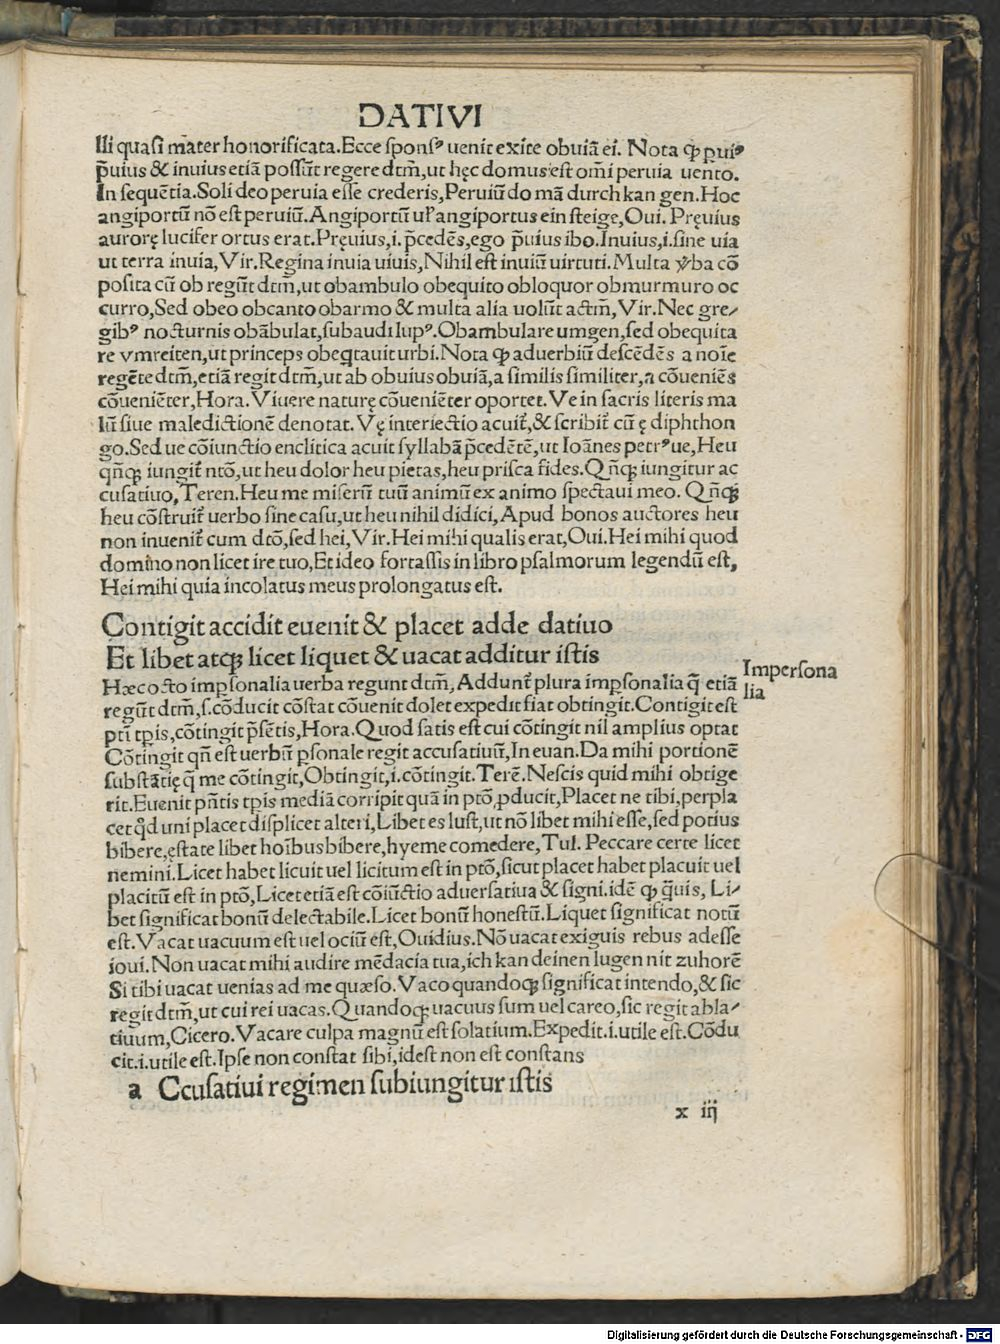 DATIVI
lli quasi mater honorificata.Ecce sponsꝰ uenit exite obuiã ei. Nota ꝙ puiꝰ
p̃uius & inuius etiã possũt regere dtm̃,ut hęc domus est om̃i peruia uento.
In sequẽtia.Soli deo peruia esse crederis,Peruiũ do mã durch kan gen.Hoc
angiportũ nõ est peruiũ.Angiportũ uł angiportus ein steige,Oui. Pręuius
aurorę lucifer ortus erat.Pręuius,i.p̃cedẽs,ego p̃uius ibo.Inuius,i.sine uia
ut terra inuia,Vir.Regina inuia uiuis,Nihil est inuiũ uirtuti.Multa ỹba cõ
posita cũ ob regũt dtm̃,ut obambulo obequito obloquor obmurmuro oc
curro,Sed obeo obcanto obarmo & multa alia uolũt actm̃,Vir.Nec gre⸗
gibꝰ nocturnis obãbulat,subaudi lupꝰ.Obambulare umgen,sed obequita
re vmreiten,ut princeps obeq̃tauit urbi.Nota ꝙ aduerbiũ descẽdẽs a noĩe
regẽte dtm̃,etiã regit dtm̃,ut ab obuius obuiã,a similis similiter,a cõueniẽs
cõueniẽter,Hora.Viuere naturę cõueniẽter oportet.Ve in sacris literis ma
lũ siue maledictionẽ denotat.Vę interiectio acuit᷑,& scribit᷑ cũ ę diphthon
go.Sed ue cõiunctio enclitica acuit syllabã p̃cedẽtẽ,ut Ioãnes petrꝰue,Heu
qñꝗ iungit᷑ ntõ,ut heu dolor heu pietas,heu prisca fides.Qñꝗ iungitur ac
cusatiuo,Teren.Heu me miserũ tuũ animũ ex animo spectaui meo. Qñꝗ
heu cõstruit᷑ uerbo sine casu,ut heu nihil didici,Apud bonos auctores heu
non inuenit᷑ cum dtõ,sed hei,Vir.Hei mihi qualis erat,Oui.Hei mihi quod
domino non licet ire tuo,Et ideo fortassis in libro psalmorum legendũ est,
Hei mihi quia incolatus meus prolongatus est.
Contigit accidit euenit & placet adde datiuo
Et libet atꝗ licet liquet & uacat additur istis
Impersona
lia
Hæc octo imp̱sonalia uerba regunt dtm̃, Addunt᷑ plura imp̱sonalia q̃ etiã
regũt dtm̃,s.cõducit cõstat cõuenit dolet expedit fiat obtingit.Contigit est
pti᷑ tp̱is,cõtingit p̃sẽtis,Hora.Quod satis est cui cõtingit nil amplius optat
Cõtingit qñ est uerbũ p̱sonale regit accusatiuũ,In euan.Da mihi portionẽ
substãtię q̃ me cõtingit,Obtingit,i.cõtingit.Terẽ.Nescis quid mihi obtige
rit.Euenit pñtis tp̱is mediã corripit quã in ptõ,ꝓducit,Placet ne tibi,perpla
cet qd̃ uni placet displicet alteri,Libet es lust,ut nõ libet mihi esse,sed potius
bibere,ęstate libet hoĩbus bibere,hyeme comedere,Tul. Peccare certe licet
nemini.Licet habet licuit uel licitum est in ptõ,sicut placet habet placuit uel
placitũ est in ptõ,Licet etiã est cõiũctio aduersatiua & signi.idẽ ꝙ q̃uis, Li⸗
bet significat bonũ delectabile.Licet bonũ honestũ.Liquet significat notũ
est.Vacat uacuum est uel ociũ est,Ouidius.Nõ uacat exiguis rebus adesse
ioui.Non uacat mihi audire mẽdacia tua,ich kan deinen lugen nit zuhorẽ
Si tibi uacat uenias ad me quæso.Vaco quandoꝗ significat intendo,& sic
regit dtm̃,ut cui rei uacas.Quandoꝗ uacuus sum uel careo,sic regit abla⸗
tiuum,Cicero.Vacare culpa magnũ est solatium.Expedit.i.utile est.Cõdu
cit.i.utile est.Ipse non constat sibi,idest non est constans
a Ccusatiui regimen subiungitur istis
x iij
Digitalisierung gefördert durch die Deutsche Forschungsgemeinschaft - DFG